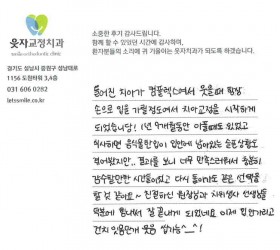 소중한 후기 감사드립니다.
함께 할 수 있었던 시간에 감사하며,
환자분들의 소리에 귀 기울이는 웃자교정치과가 되도록 하겠습니다.
웃자교정치과
경기도 성남시 중원구 성남대로
1156 도원타워 3,4층
031 606 0282
letssmile.co.kr
틀어진 치아가 컴플렉스여서 웃을때 항상
손으로 입을 가릴정도여서 치아교정을 시작하게
되었습니다! 1년 9개월동안 아플때도 있었고
식사하면 음식물 입안에 남아있는 순간
겪어봤지만.. 결과를 보니 너무 만족스러워서 충분히
감수할만한 시간들이었고 다시 돌아가도 같은 선택을
할 것 같아요~ 친절하신 원장님과 치위생사 선생님들
덕분에 힘내서 잘 끝내게 되었네요 이제
건치 있몸만개 웃음 쌉가능^__^!